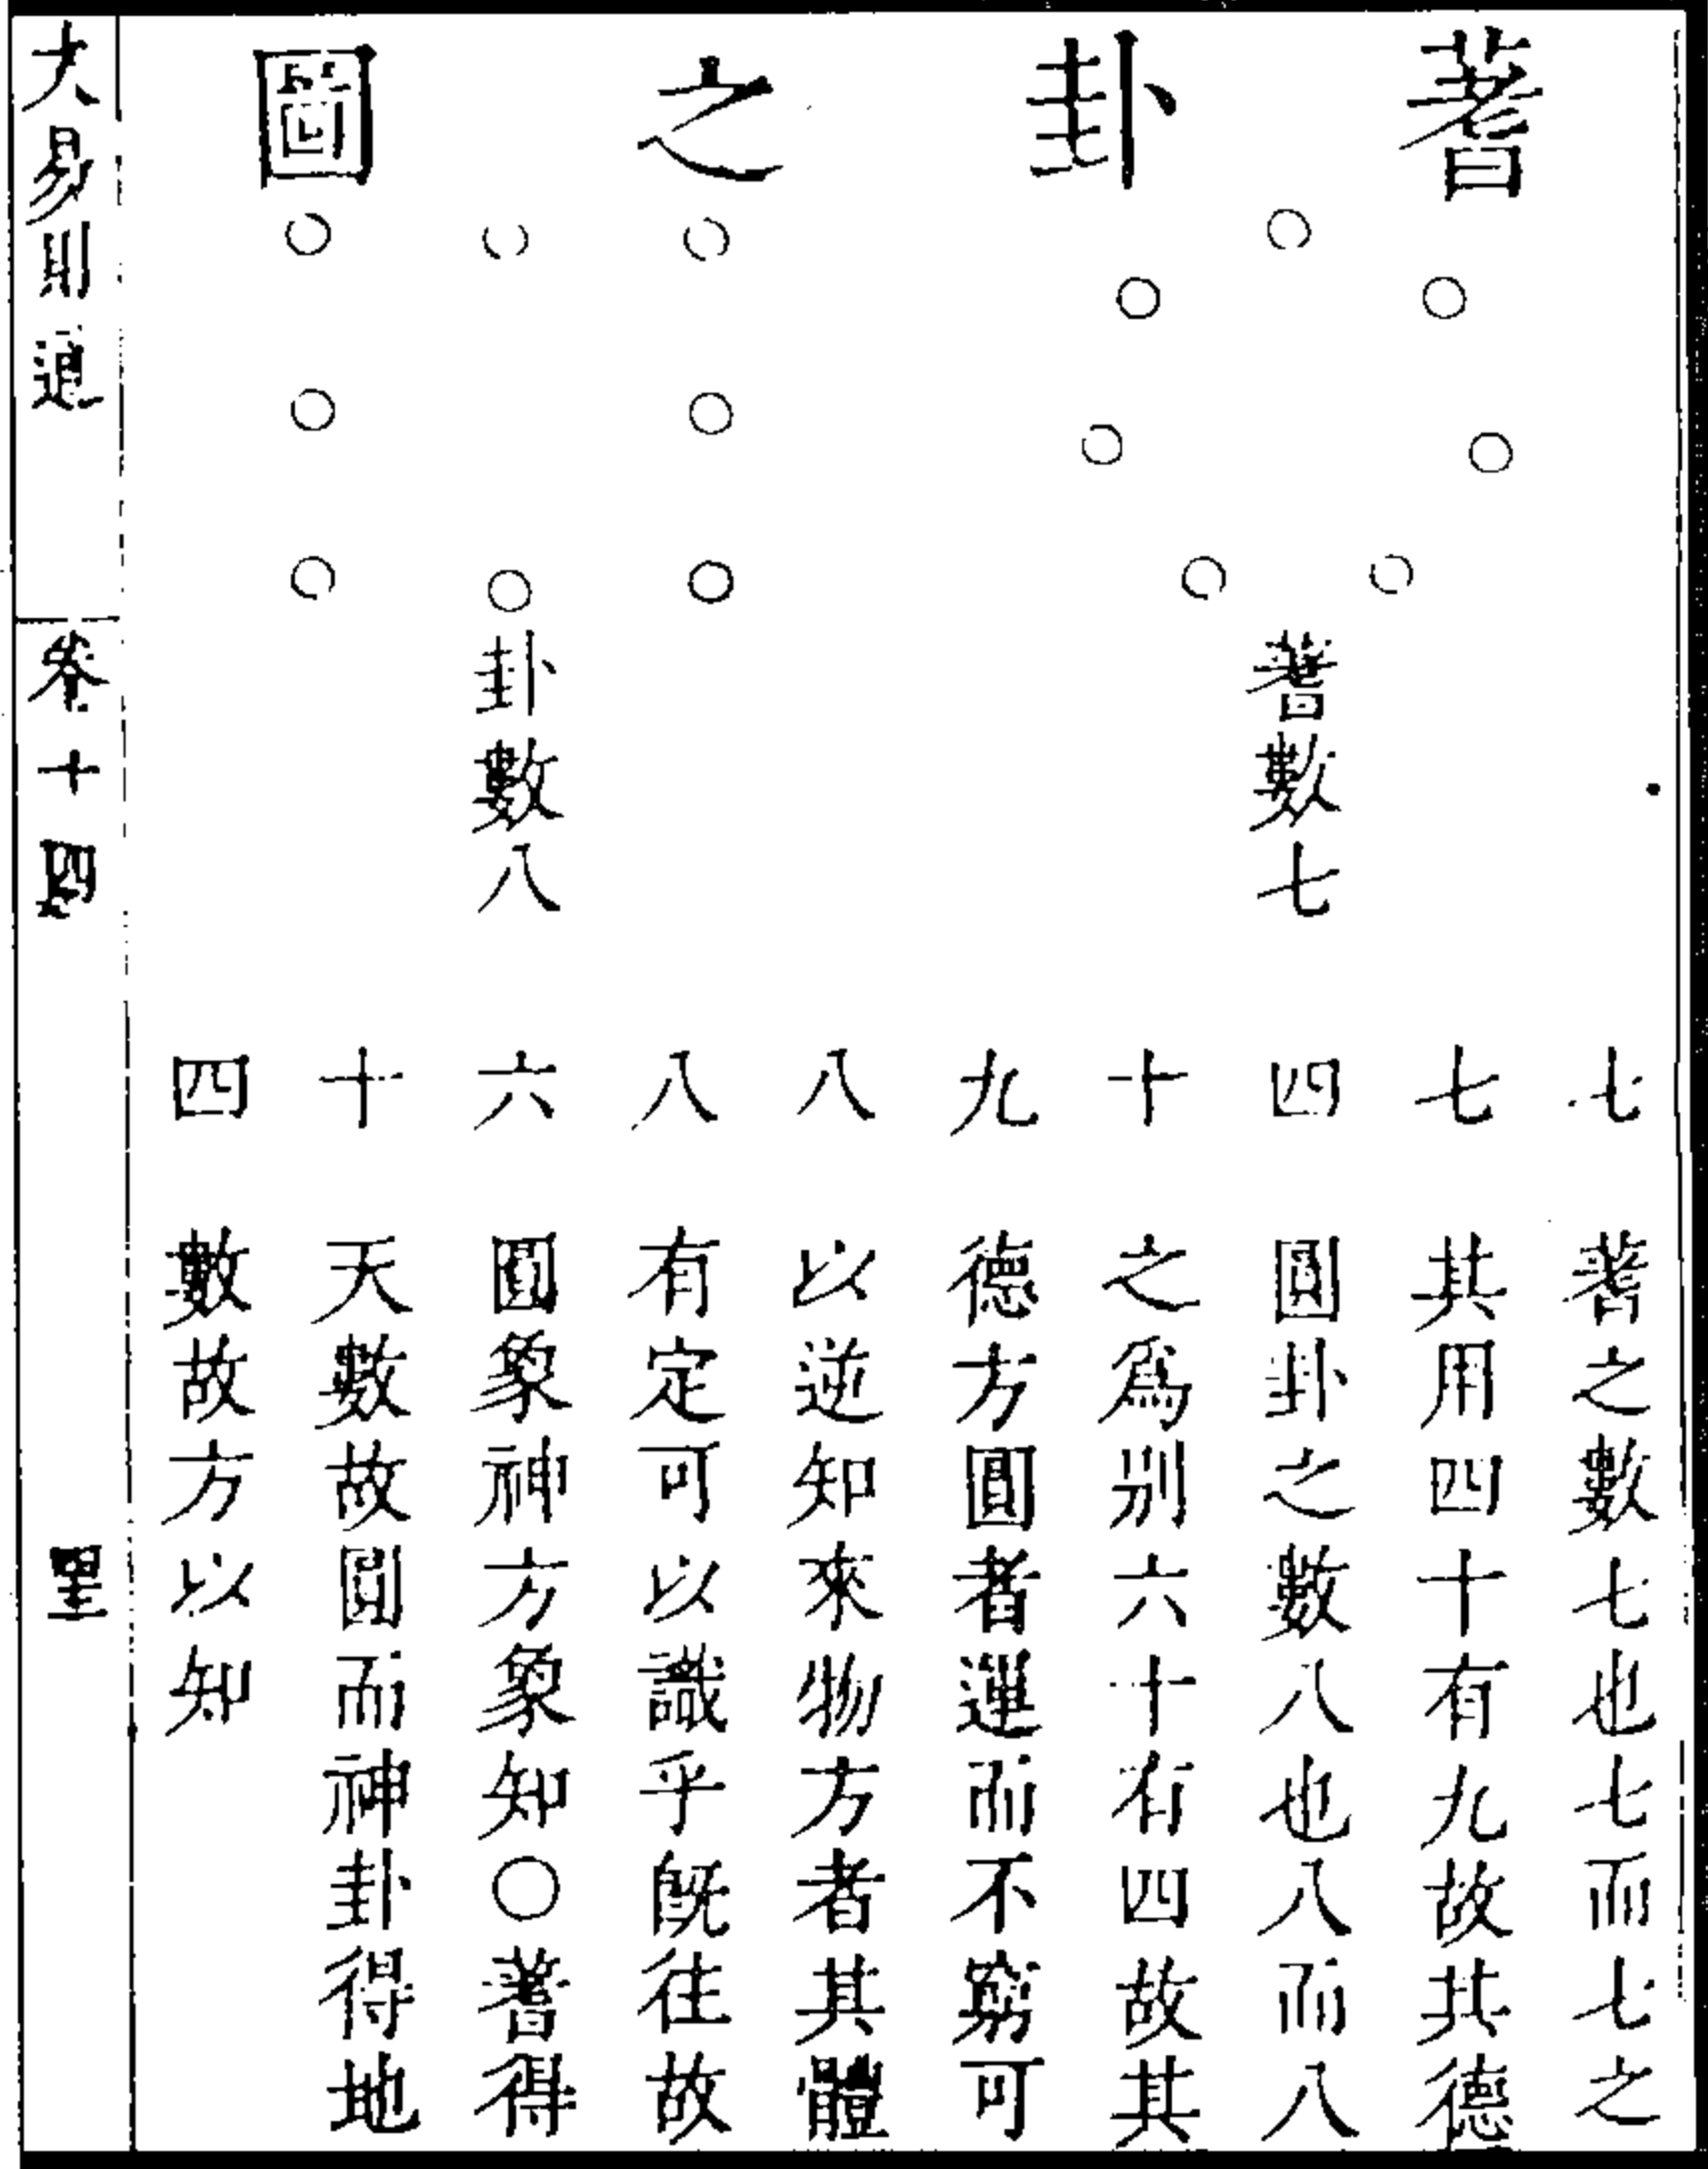 蓍卦之圖
蓍數七
卦數八
七七四十九八八六十四
蓍之數七也七而七之
其用四十有九故其德
圓卦之數八也八而八
之爲别六十有四故其
德方圓者運而不窮可
以逆知來物方者其體
有定可以識乎既往故
圓象神方象知○蓍得
天數故圓而神卦得地
數故方以知
大易則通
卷十四